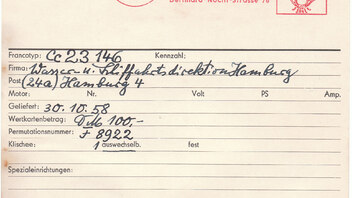 Bernhard-Nocht-Strasse 78
Francotyp: Cc 23 146 Kennzahl:
Firma: Wasser- u. Schiffahrtsdirektion Hamburg
Post (24a) Hamburg 4
Motor: Nr. Volt PS Amp.
Geliefert: 30.10.58
Wertkartenbetrag: DM 100,-
Permutationsnummer: F 8922
Klischee: 1 auswechselb. fest
Spezialeinrichtungen: